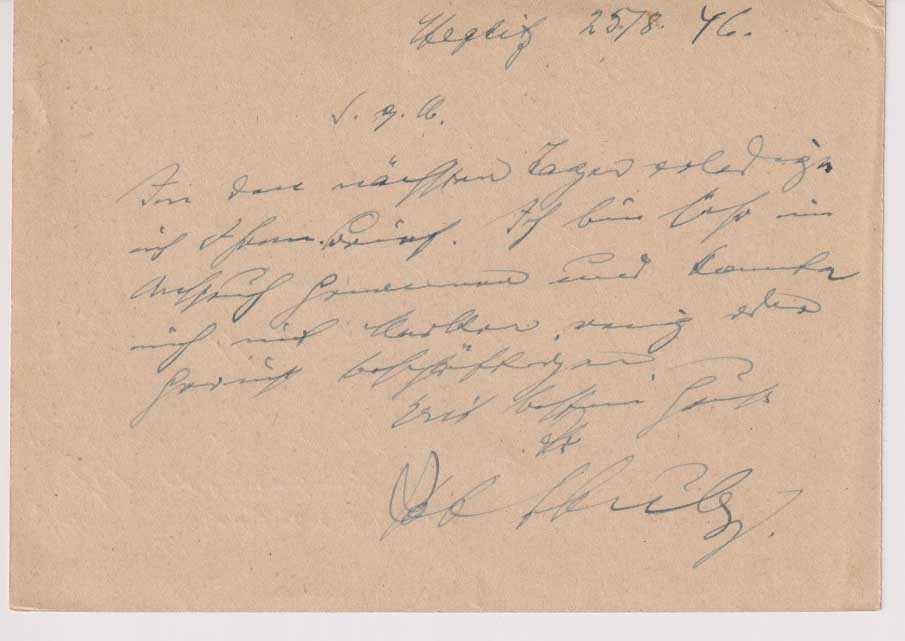 Steglitz 25/8. 46.
S. g. H.
In den nächsten Tagen erledige
ich Ihren Brief. Ich bin sehr in
Anspruch genommen und konnte
mich mit Marken wenig oder
garnicht beschäftigen
Mit besten Gruß
Ihr